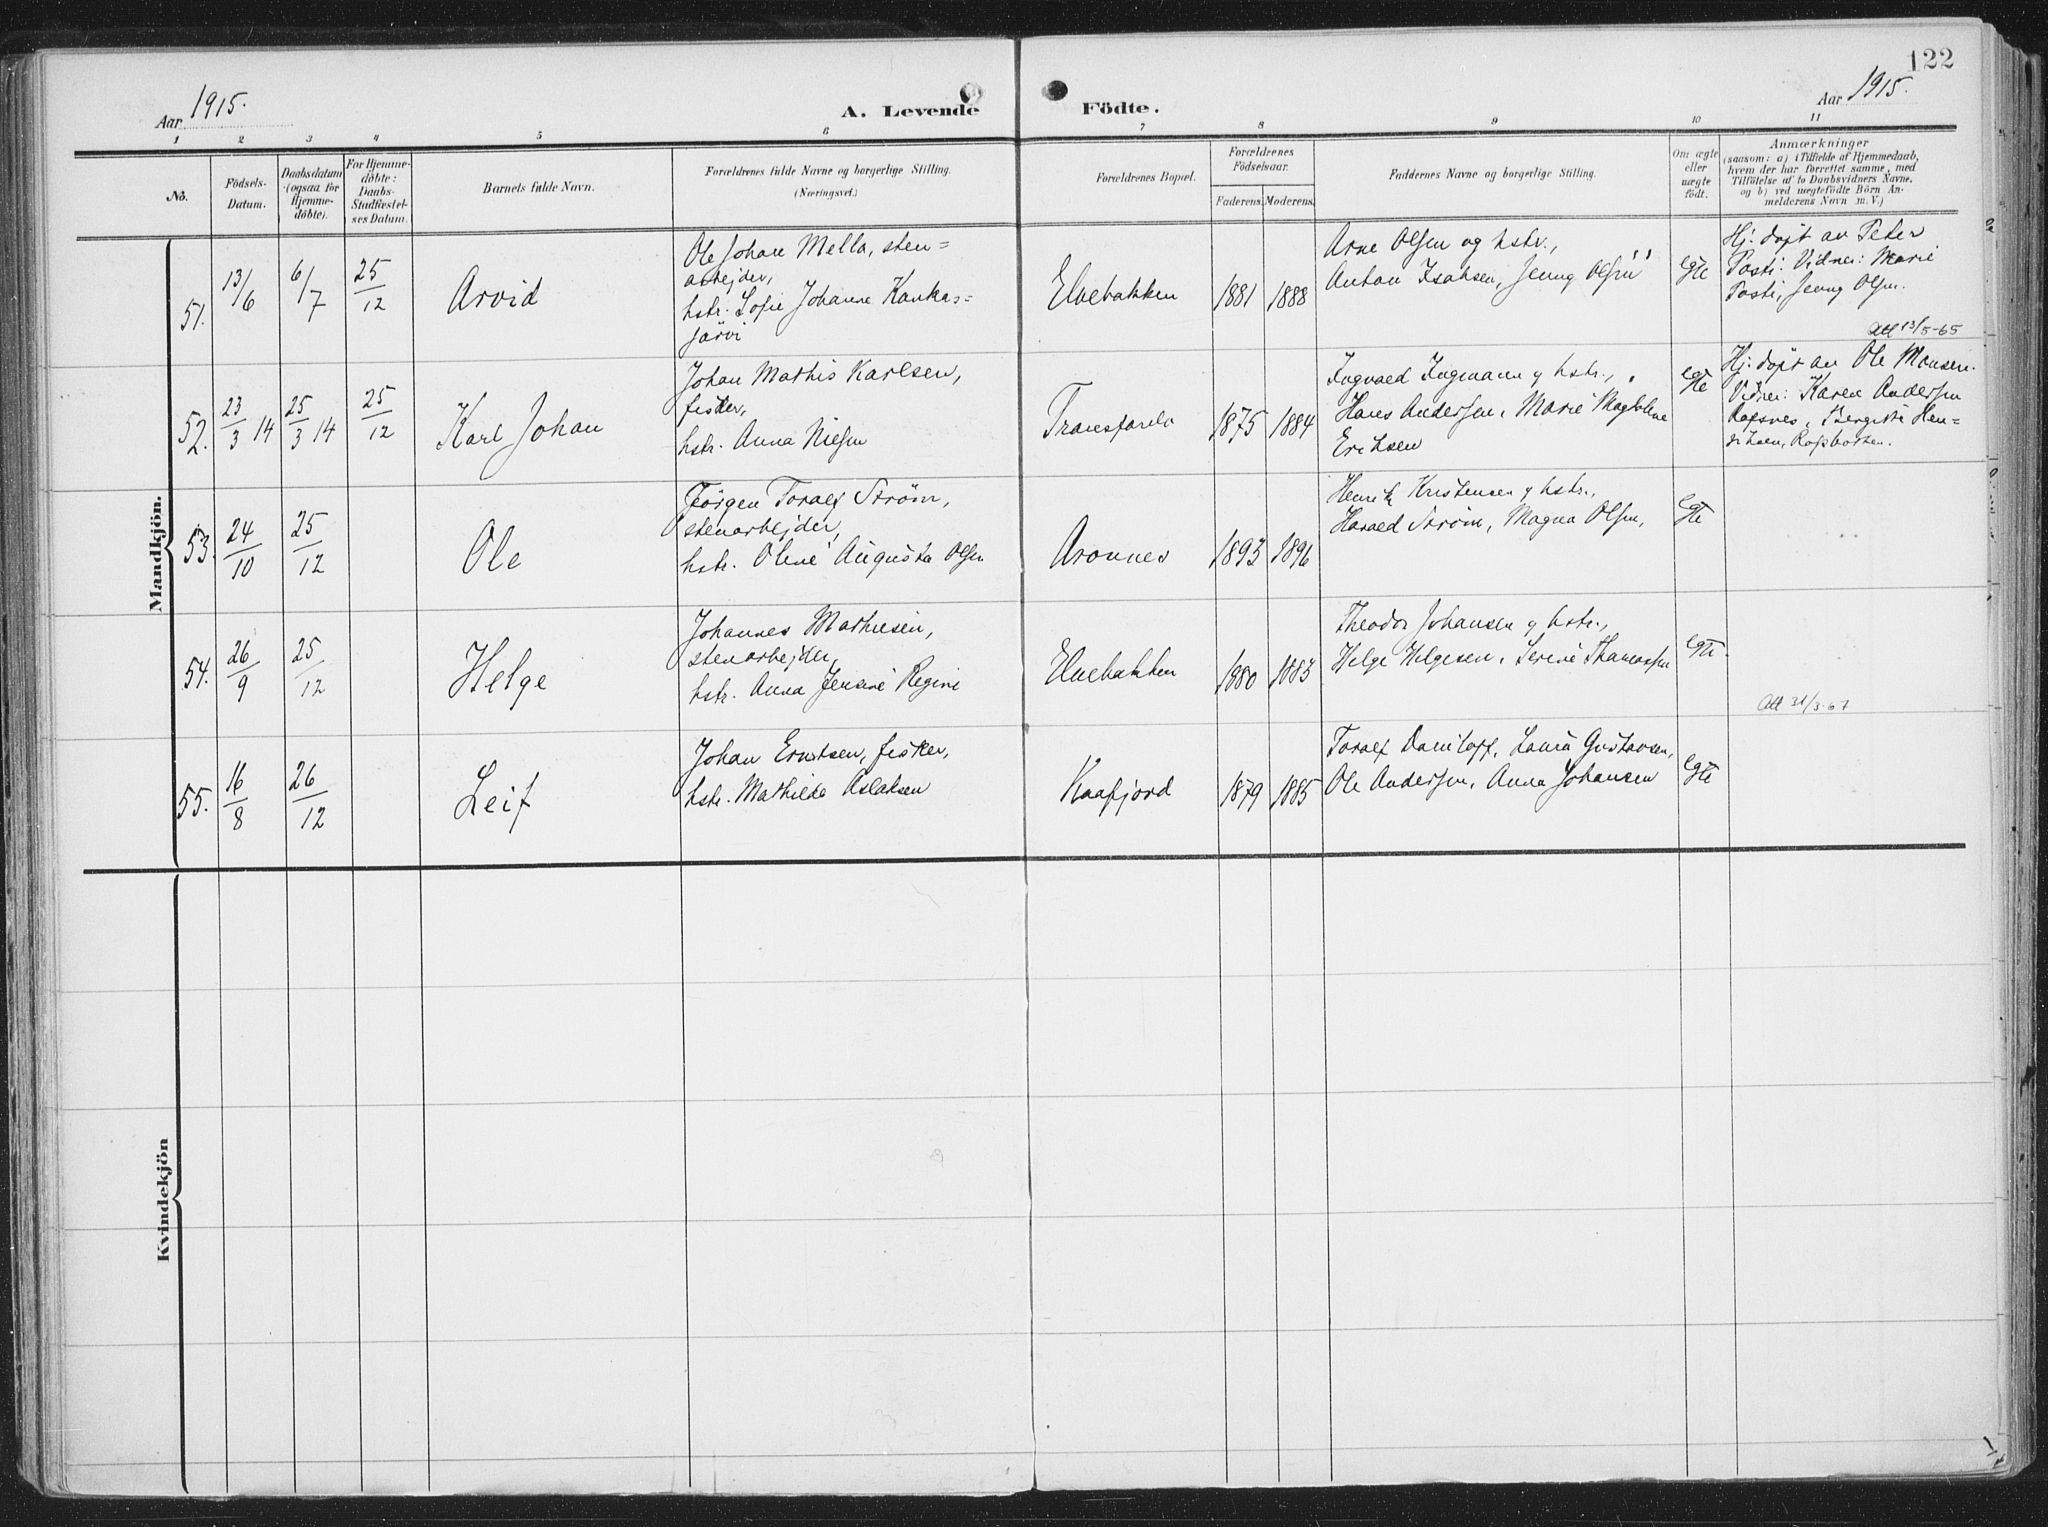 122
Aar 1915.
A. Levende Födte.
Aar 1915.
1 2 3 4 5 6 7 8 9 10 11
No.
Födsels-
Datum.
Daabsdatum
(ogsaa for
Hjemme-
döbte).
For Hjemme-
döbte:
Daabs-
Stadfæstel-
ses Datum.
Barnets fulde Navn.
Forældrenes fulde Navne og borgerlige Stilling.
(Næringsvei.)
Forældrenes Bopæl.
Forældrenes
Födselsaar.
Faderens. Moderens.
Faddernes Navne og borgerlige Stilling.
Om ægte
eller
uægte
födt.
Anmærkninger
(saasom: a) i Tilfælde af Hjemmedaab,
hvem der har forrettet samme, med
Tilföielse af to Daabsvidners Navne,
og b) ved uægtefödte Börn An-
melderens Navn m. V.)
Mandkjön.
51.
13/6
6/7
25/12
Arvid
Ole Johan Mella, sten=
arbejder,
hstr. Sofie Johanne Kankas=
järvi
Elvebakken
1881 1888
Arne Olsen og hstr.,
Anton Isaksen, Jenny Olsen
egte
Hj. døpt av Peter
Posti. Vidner: Marie
Posti, Jenny Olsen.
Att 13/5-65
52.
23/3 14
25/3 14
25/12
Karl Johan
Johan Mathis Karlsen,
fisker,
hstr. Anna Nilsen
Transfarelv
1875 1884
Ingvald Ingmann og hstr.,
Hans Andersen, Marie Magdalene
Eriksen
egte
Hj. døpt av Ole Monsen.
Vidner: Karen Andersen
Rafsnes, Bergitte Hen=
riksen, Rafsbotten.
53.
24/10
25/12
Ole
Jørgen Toralf Strøm,
stenarbejder,
hstr. Oline Augusta Olsen
Aronnes
1893 1896
Henrik Kristensen og hstr.,
Harald Strøm, Magna Olsen,
egte
54.
26/9
25/12
Helge
Johannes Mathisen,
stenarbejder,
hstr. Anna Jensine Regine
Elvebakken
1880 1883
Theodor Johansen og hstr.,
Helge Helgesen, Serine Thomassen
egte
Att 31/3-67
55.
16/8
26/12
Leif
Johan Erntsen, fisker,
hstr. Mathilde Aslaksen
Kaafjord
1879 1885
Toralf Daniloff, Laura Gustavsen,
Ole Andersen, Anna Johansen
egte
Kvindekjön